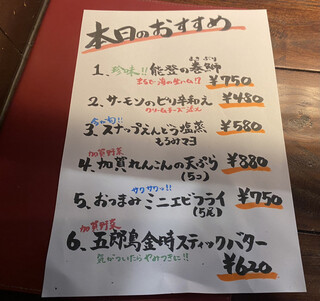 本日のおすすめ
まき ぶり
1、珍味!!能登の巻鰤
まるで海の生ハム!? ¥750
2、サーモンのピリ辛和え ¥480
クリームチーズ
今が旬!!
3、スナップえんどう塩蒸 ¥580
もろみマヨ
加賀野菜
4、加賀れんこんの天ぷら ¥880
(5コ)
サクサクッ!!
5、おつまみミニエビフライ ¥750
(5尾)
加賀野菜
6、五郎島金時スティックバター
気がついたらやみつきに!! ¥620